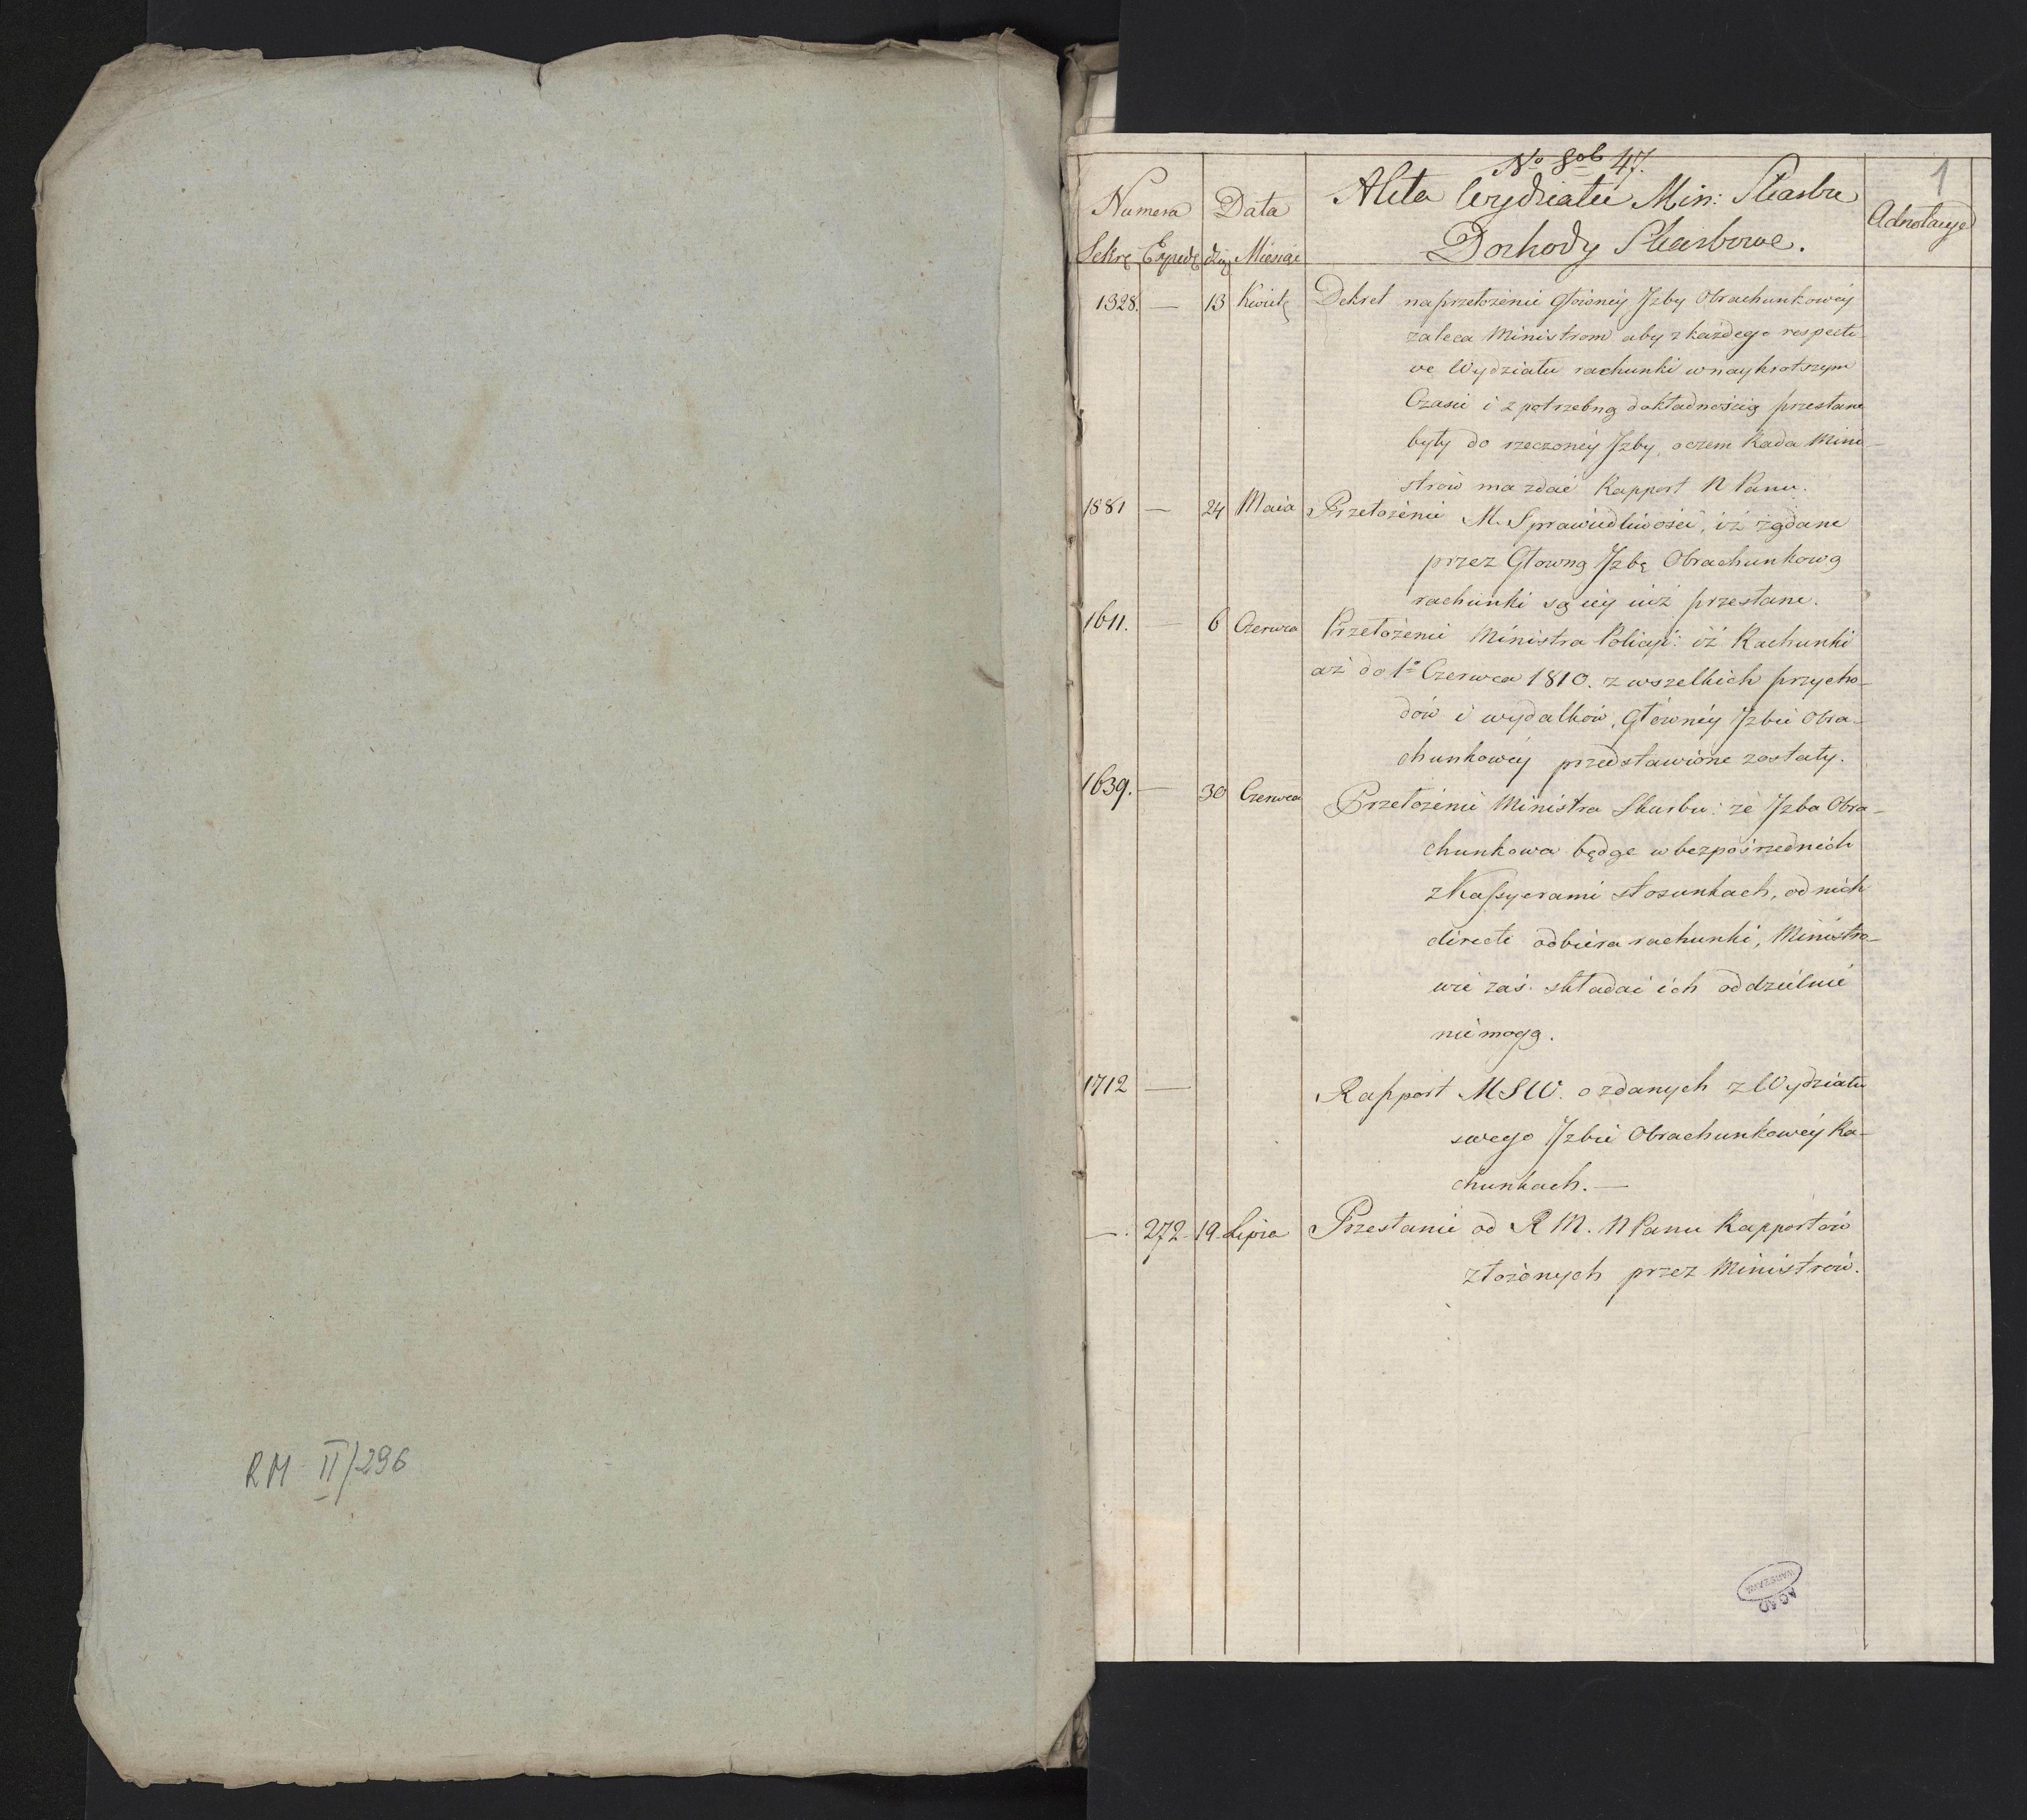 RM II/296
1
No 8ob 47.
Numera
Data
Akta Wydziału Min: Skarbu
Adnotacye
Sekrę Expedę dzę Miesiąc
Dochody Skarbowe.
1328. — 13 Kwietę Dekret na przełożenie Głównéy Jzby Obrachunkowéy
zaleca Ministrom aby z każdego respecti-
ve Wydziału rachunki w naykrotszym
Czasie i z potrzebną dokładnością przesłane
były do rzeczonéy Jzby, o czem Rada Mini-
strów ma zdać Rapport N Panu.
1881 — 24 Maia Przełożenie M. Sprawiedliwości, iż żądane
przez Głowną Jzbę Obrachunkową
rachunki są iéy iuż przesłane.
1611. — 6 Czerwca Przełożenie Ministra Policyi: iż Rachunki
aż do 1o Czerwca 1810. z wszelkich przycho-
dów i wydatków, Głównéy Jzbie Obra-
chunkowéy przedstawione zostały.
1639. — 30 Czerwca Przełożenie Ministra Skarbu: że Jzba Obra-
chunkowa będąc w bezpośrzednich
z Kassyerami stosunkach, od nich
directe odbiera rachunki, Ministro-
wie zaś składać ich oddzielnie
nie mogą.
1712 — Rapport MSW. o zdanych z Wydziału
swego Jzbie Obrachunkowéy Ra-
chunkach. —
— 272 - 19 - Lipca Przesłanie od R M. N Panu Rapportów
złożonych przez Ministrów.
AGAD
WARSZAWA